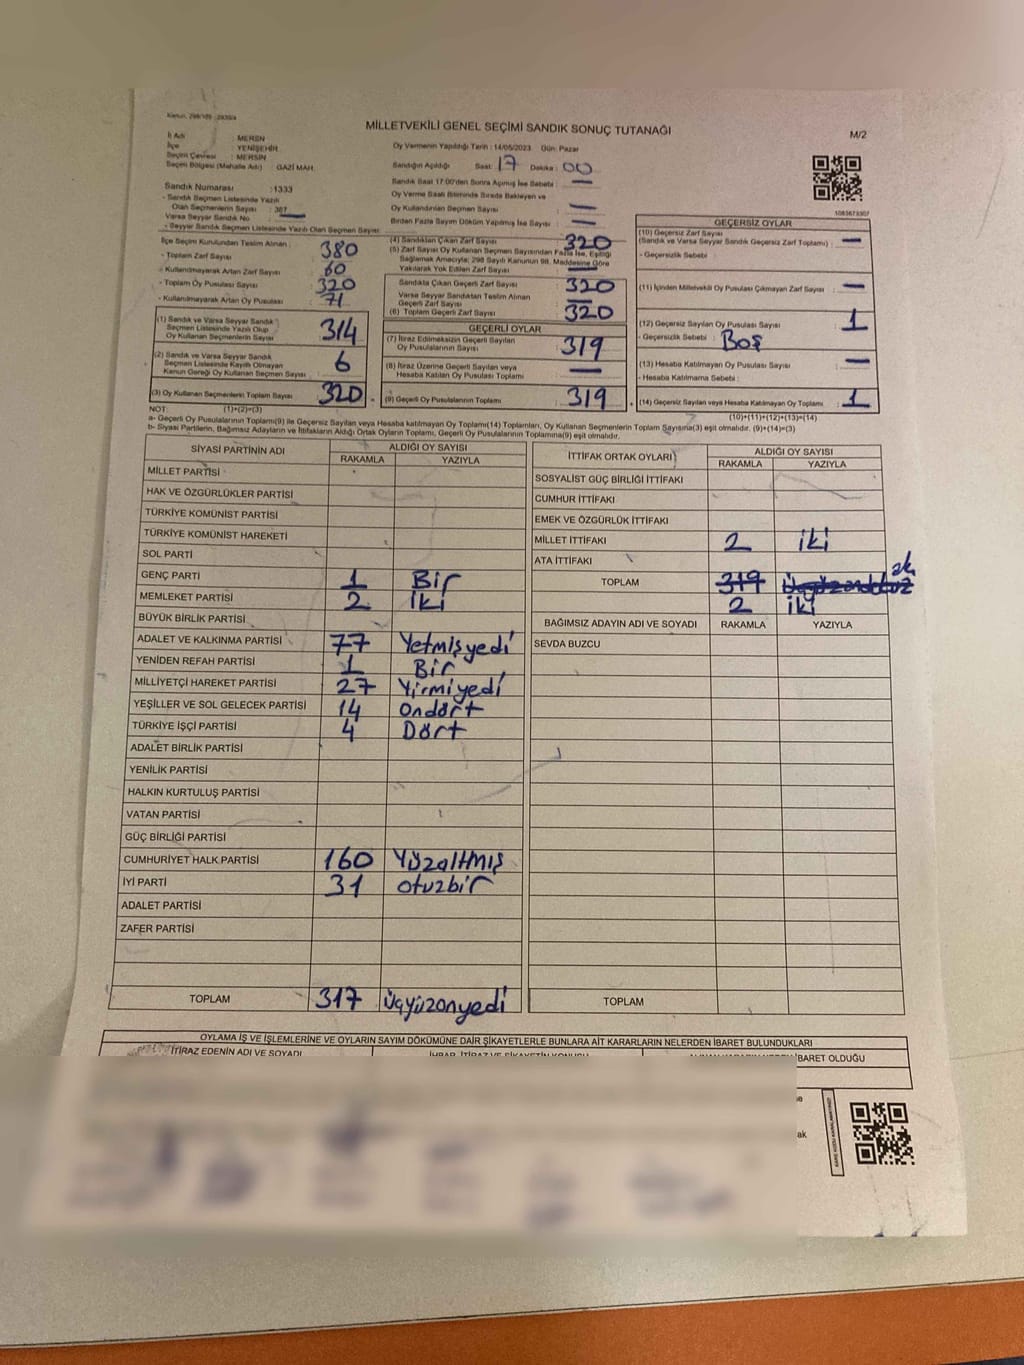 MİLLETVEKİLİ GENEL SEÇİMİ SANDIK SONUÇ TUTANAĞI
M/2
İl Adı : MERSİN
İlçe : YENİŞEHİR
Seçim Çevresi : MERSİN
Seçim Bölgesi (Mahalle Adı) GAZİ MAH.
Sandık Numarası : 1333
- Sandık Seçmen Listesinde Yazılı
Olan Seçmenlerin Sayısı : 387
Varsa Seyyar Sandık No —
- Seyyar Sandık Seçmen Listesinde Yazılı Olan Seçmen Sayısı
İlçe Seçim Kurulundan Teslim Alınan :
- Toplam Zarf Sayısı 380
- Kullanılmayarak Artan Zarf Sayısı 60
- Toplam Oy Pusulası Sayısı 320
- Kullanılmayarak Artan Oy Pusulası 71
(1) Sandık ve Varsa Seyyar Sandık
Seçmen Listesinde Yazılı Olup
Oy Kullanan Seçmenlerin Sayısı 314
(2) Sandık ve Varsa Seyyar Sandık
Seçmen Listesinde Kayıtlı Olmayan
Kanun Gereği Oy Kullanan Seçmen Sayısı 6
(3) Oy Kullanan Seçmenlerin Toplam Sayısı 320
Oy Vermenin Yapıldığı Tarih : 14/05/2023 Gün: Pazar
Sandığın Açıldığı Saat: 17 Dakika : 00
Sandık Saat 17:00'den Sonra Açılmış İse Sebebi : —
Oy Verme Saati Bitiminde Sırada Bekleyen ve
Oy Kullandırılan Seçmen Sayısı —
Birden Fazla Sayım Döküm Yapılmış İse Sayısı : —
(4) Sandıktan Çıkan Zarf Sayısı 320
(5) Zarf Sayısı Oy Kullanan Seçmen Sayısından Fazla İse, Eşitliği
Sağlamak Amacıyla, 298 Sayılı Kanunun 98. Maddesine Göre
Yakılarak Yok Edilen Zarf Sayısı —
Sandıkta Çıkan Geçerli Zarf Sayısı 320
Varsa Seyyar Sandıktan Teslim Alınan
Geçerli Zarf Sayısı —
(6) Toplam Geçerli Zarf Sayısı 320
GEÇERLİ OYLAR
(7) İtiraz Edilmeksizin Geçerli Sayılan
Oy Pusulalarının Sayısı 319
(8) İtiraz Üzerine Geçerli Sayılan veya
Hesaba Katılan Oy Pusulası Toplamı —
(9) Geçerli Oy Pusulalarının Toplamı 319
GEÇERSİZ OYLAR
(10) Geçersiz Zarf Sayısı
(Sandık ve Varsa Seyyar Sandık Geçersiz Zarf Toplamı) : —
- Geçersizlik Sebebi :
(11) İçinden Milletvekili Oy Pusulası Çıkmayan Zarf Sayısı : —
(12) Geçersiz Sayılan Oy Pusulası Sayısı : 1
- Geçersizlik Sebebi : Boş
(13) Hesaba Katılmayan Oy Pusulası Sayısı : —
- Hesaba Katılmama Sebebi :
(14) Geçersiz Sayılan veya Hesaba Katılmayan Oy Toplamı : 1
NOT: (1)+(2)=(3) (10)+(11)+(12)+(13)=(14)
a- Geçerli Oy Pusulalarının Toplamı(9) ile Geçersiz Sayılan veya Hesaba katılmayan Oy Toplamı(14) Toplamları, Oy Kullanan Seçmenlerin Toplam Sayısına(3) eşit olmalıdır. (9)+(14)=(3)
b- Siyasi Partilerin, Bağımsız Adayların ve İttifakların Aldığı Ortak Oyların Toplamı, Geçerli Oy Pusulalarının Toplamına(9) eşit olmalıdır.
SİYASİ PARTİNİN ADI ALDIĞI OY SAYISI
RAKAMLA YAZIYLA
MİLLET PARTİSİ
HAK VE ÖZGÜRLÜKLER PARTİSİ
TÜRKİYE KOMÜNİST PARTİSİ
TÜRKİYE KOMÜNİST HAREKETİ
SOL PARTİ
GENÇ PARTİ 1 Bir
MEMLEKET PARTİSİ 2 iki
BÜYÜK BİRLİK PARTİSİ
ADALET VE KALKINMA PARTİSİ 77 Yetmişyedi
YENİDEN REFAH PARTİSİ 1 Bir
MİLLİYETÇİ HAREKET PARTİSİ 27 Yirmiyedi
YEŞİLLER VE SOL GELECEK PARTİSİ 14 Ondört
TÜRKİYE İŞÇİ PARTİSİ 4 Dört
ADALET BİRLİK PARTİSİ
YENİLİK PARTİSİ
HALKIN KURTULUŞ PARTİSİ
VATAN PARTİSİ
GÜÇ BİRLİĞİ PARTİSİ
CUMHURİYET HALK PARTİSİ 160 Yüzaltmış
İYİ PARTİ 31 otuzbir
ADALET PARTİSİ
ZAFER PARTİSİ
TOPLAM 317 Üçyüzonyedi
İTTİFAK ORTAK OYLARI ALDIĞI OY SAYISI
RAKAMLA YAZIYLA
SOSYALİST GÜÇ BİRLİĞİ İTTİFAKI
CUMHUR İTTİFAKI
EMEK VE ÖZGÜRLÜK İTTİFAKI
MİLLET İTTİFAKI 2 iki
ATA İTTİFAKI
TOPLAM 319 Üçyüzondokuz
2 iki
BAĞIMSIZ ADAYIN ADI VE SOYADI RAKAMLA YAZIYLA
SEVDA BUZCU
TOPLAM
OYLAMA İŞ VE İŞLEMLERİNE VE OYLARIN SAYIM DÖKÜMÜNE DAİR ŞİKAYETLERLE BUNLARA AİT KARARLARIN NELERDEN İBARET BULUNDUKLARI
İTİRAZ EDENİN ADI VE SOYADI
İBARET OLDUĞU